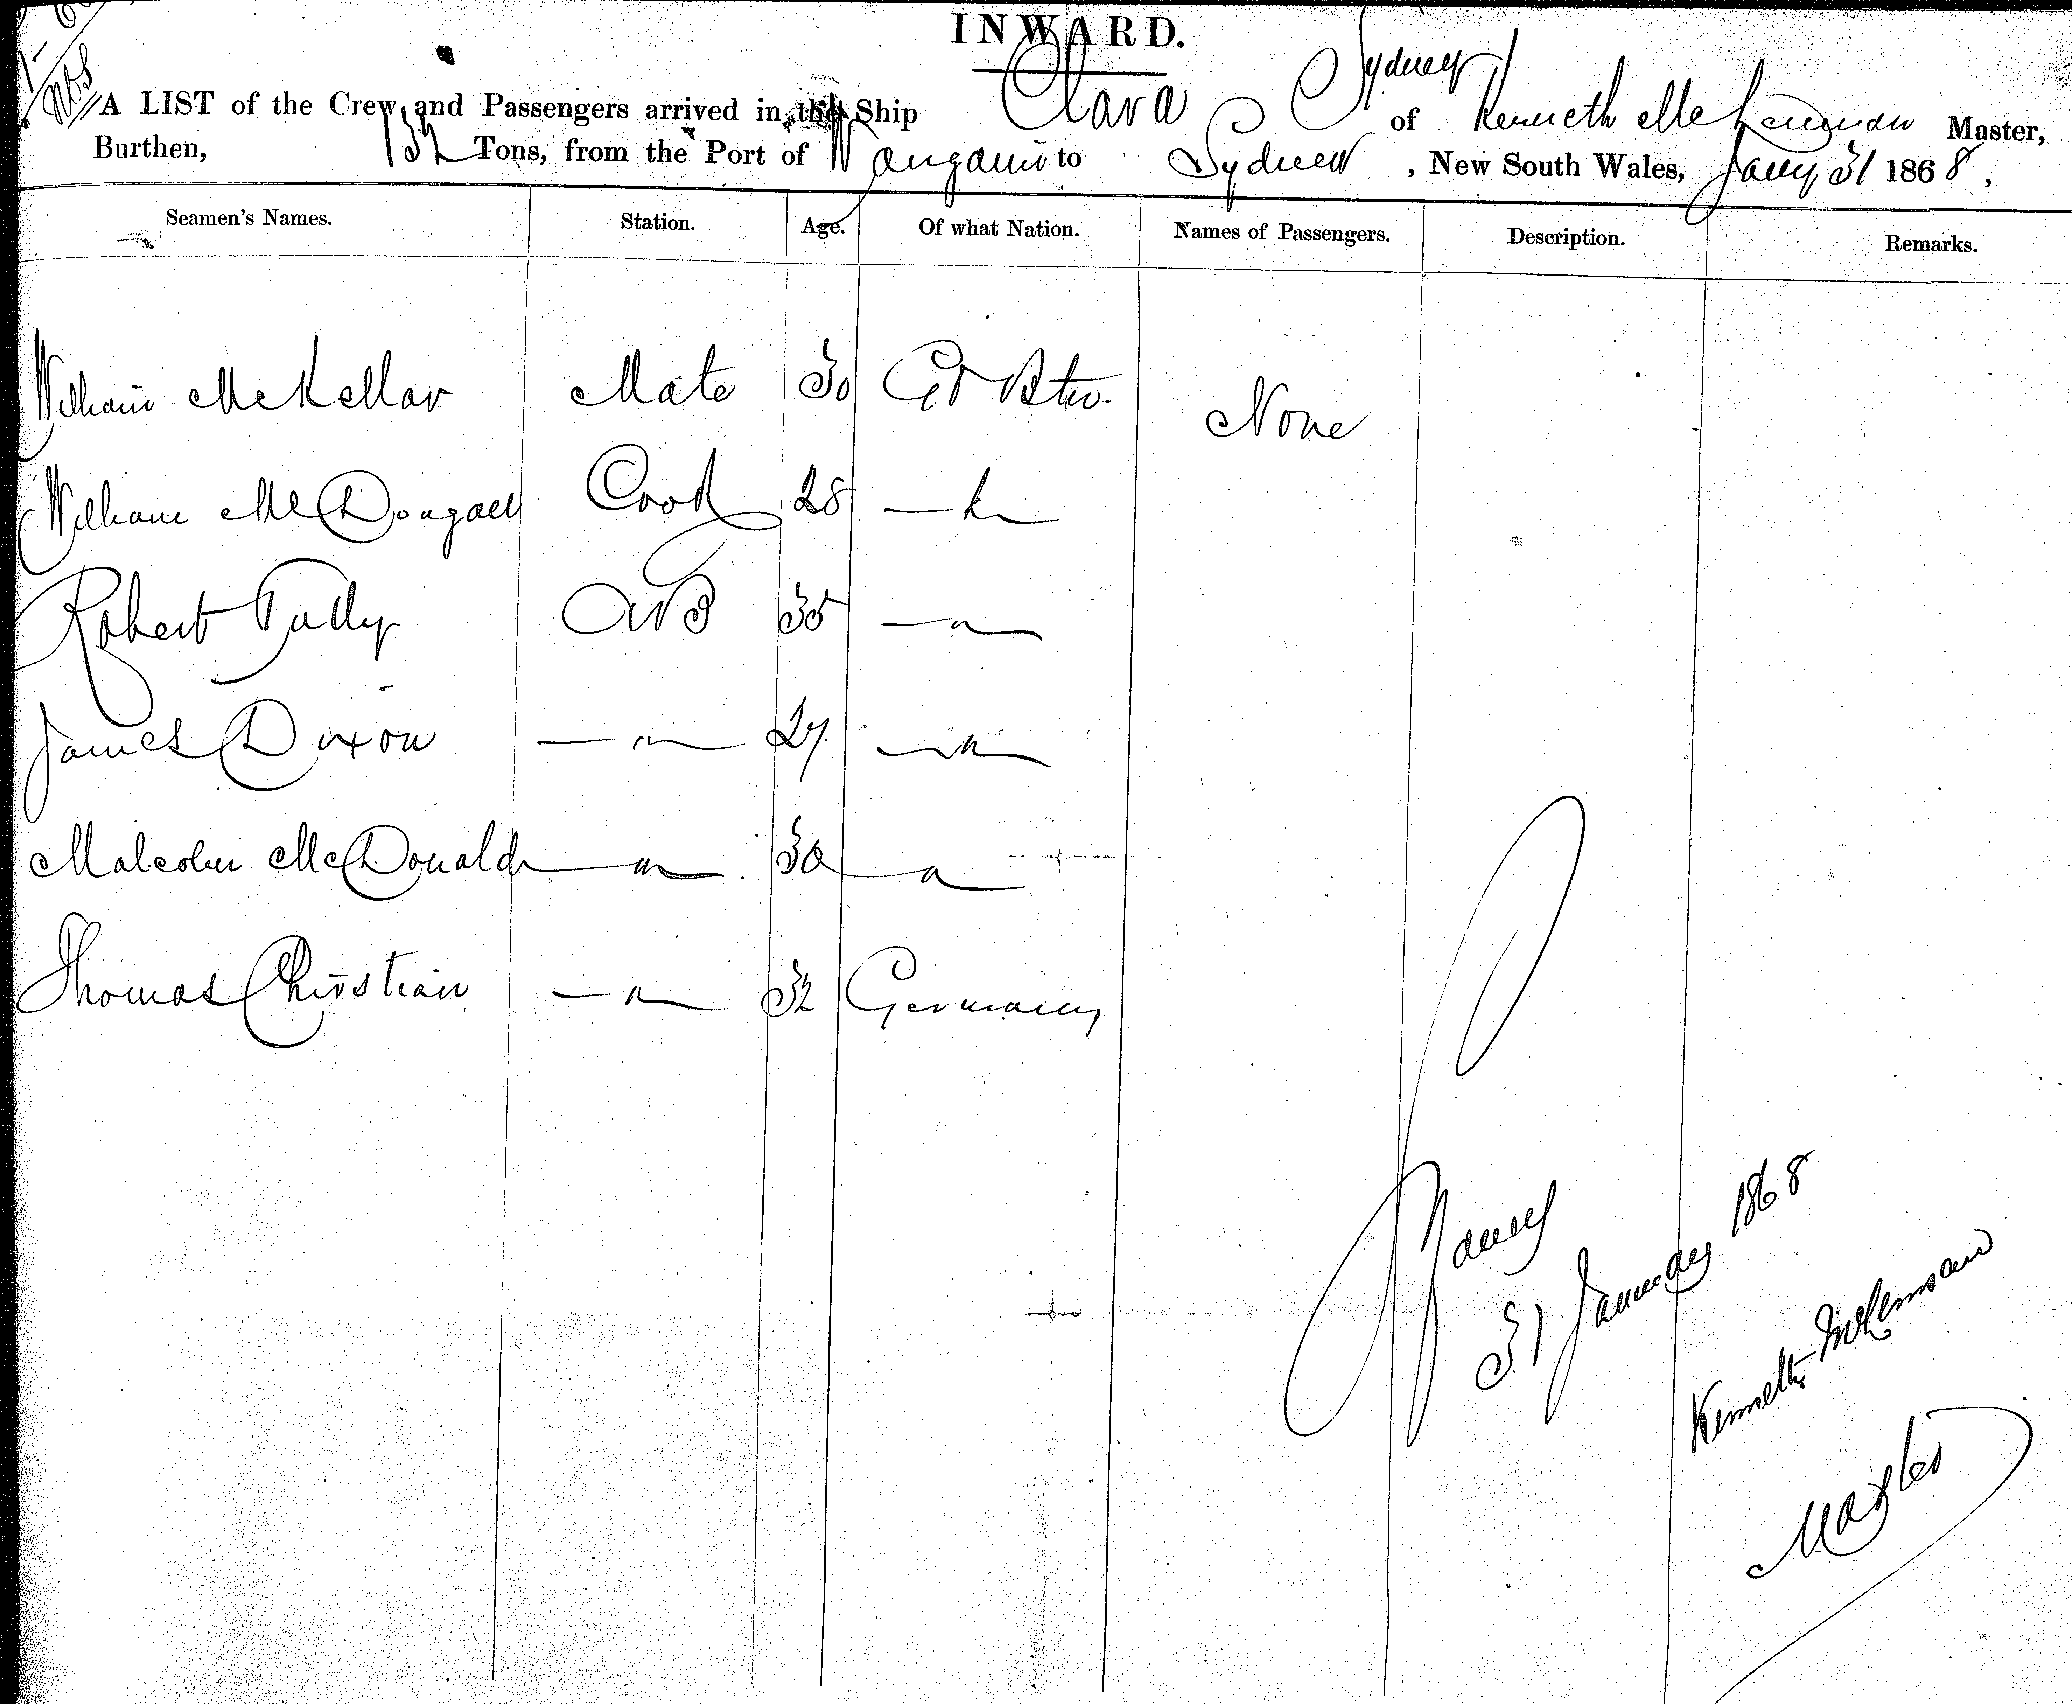 INWARD.
Sydney
A LIST of the Crew and Passengers arrived in the Ship Clara of Kenneth McLennan Master,
Burthen, 132 Tons, from the Port of Wanganui to Sydney, New South Wales, Jany 31 1868.
Seamen's Names. Station. Age. Of what Nation. Names of Passengers. Description. Remarks.
William McKellar Mate 30 Gt Btn. None
William McDougall Cook 28 —"—
Robert Tully AB 35 —"—
James Dixon —"— 27 —"—
Malcolm McDonald —"— 30 —"—
Thomas Christian —"— 32 Germany
31 January 1868
Kenneth McLennan
Master